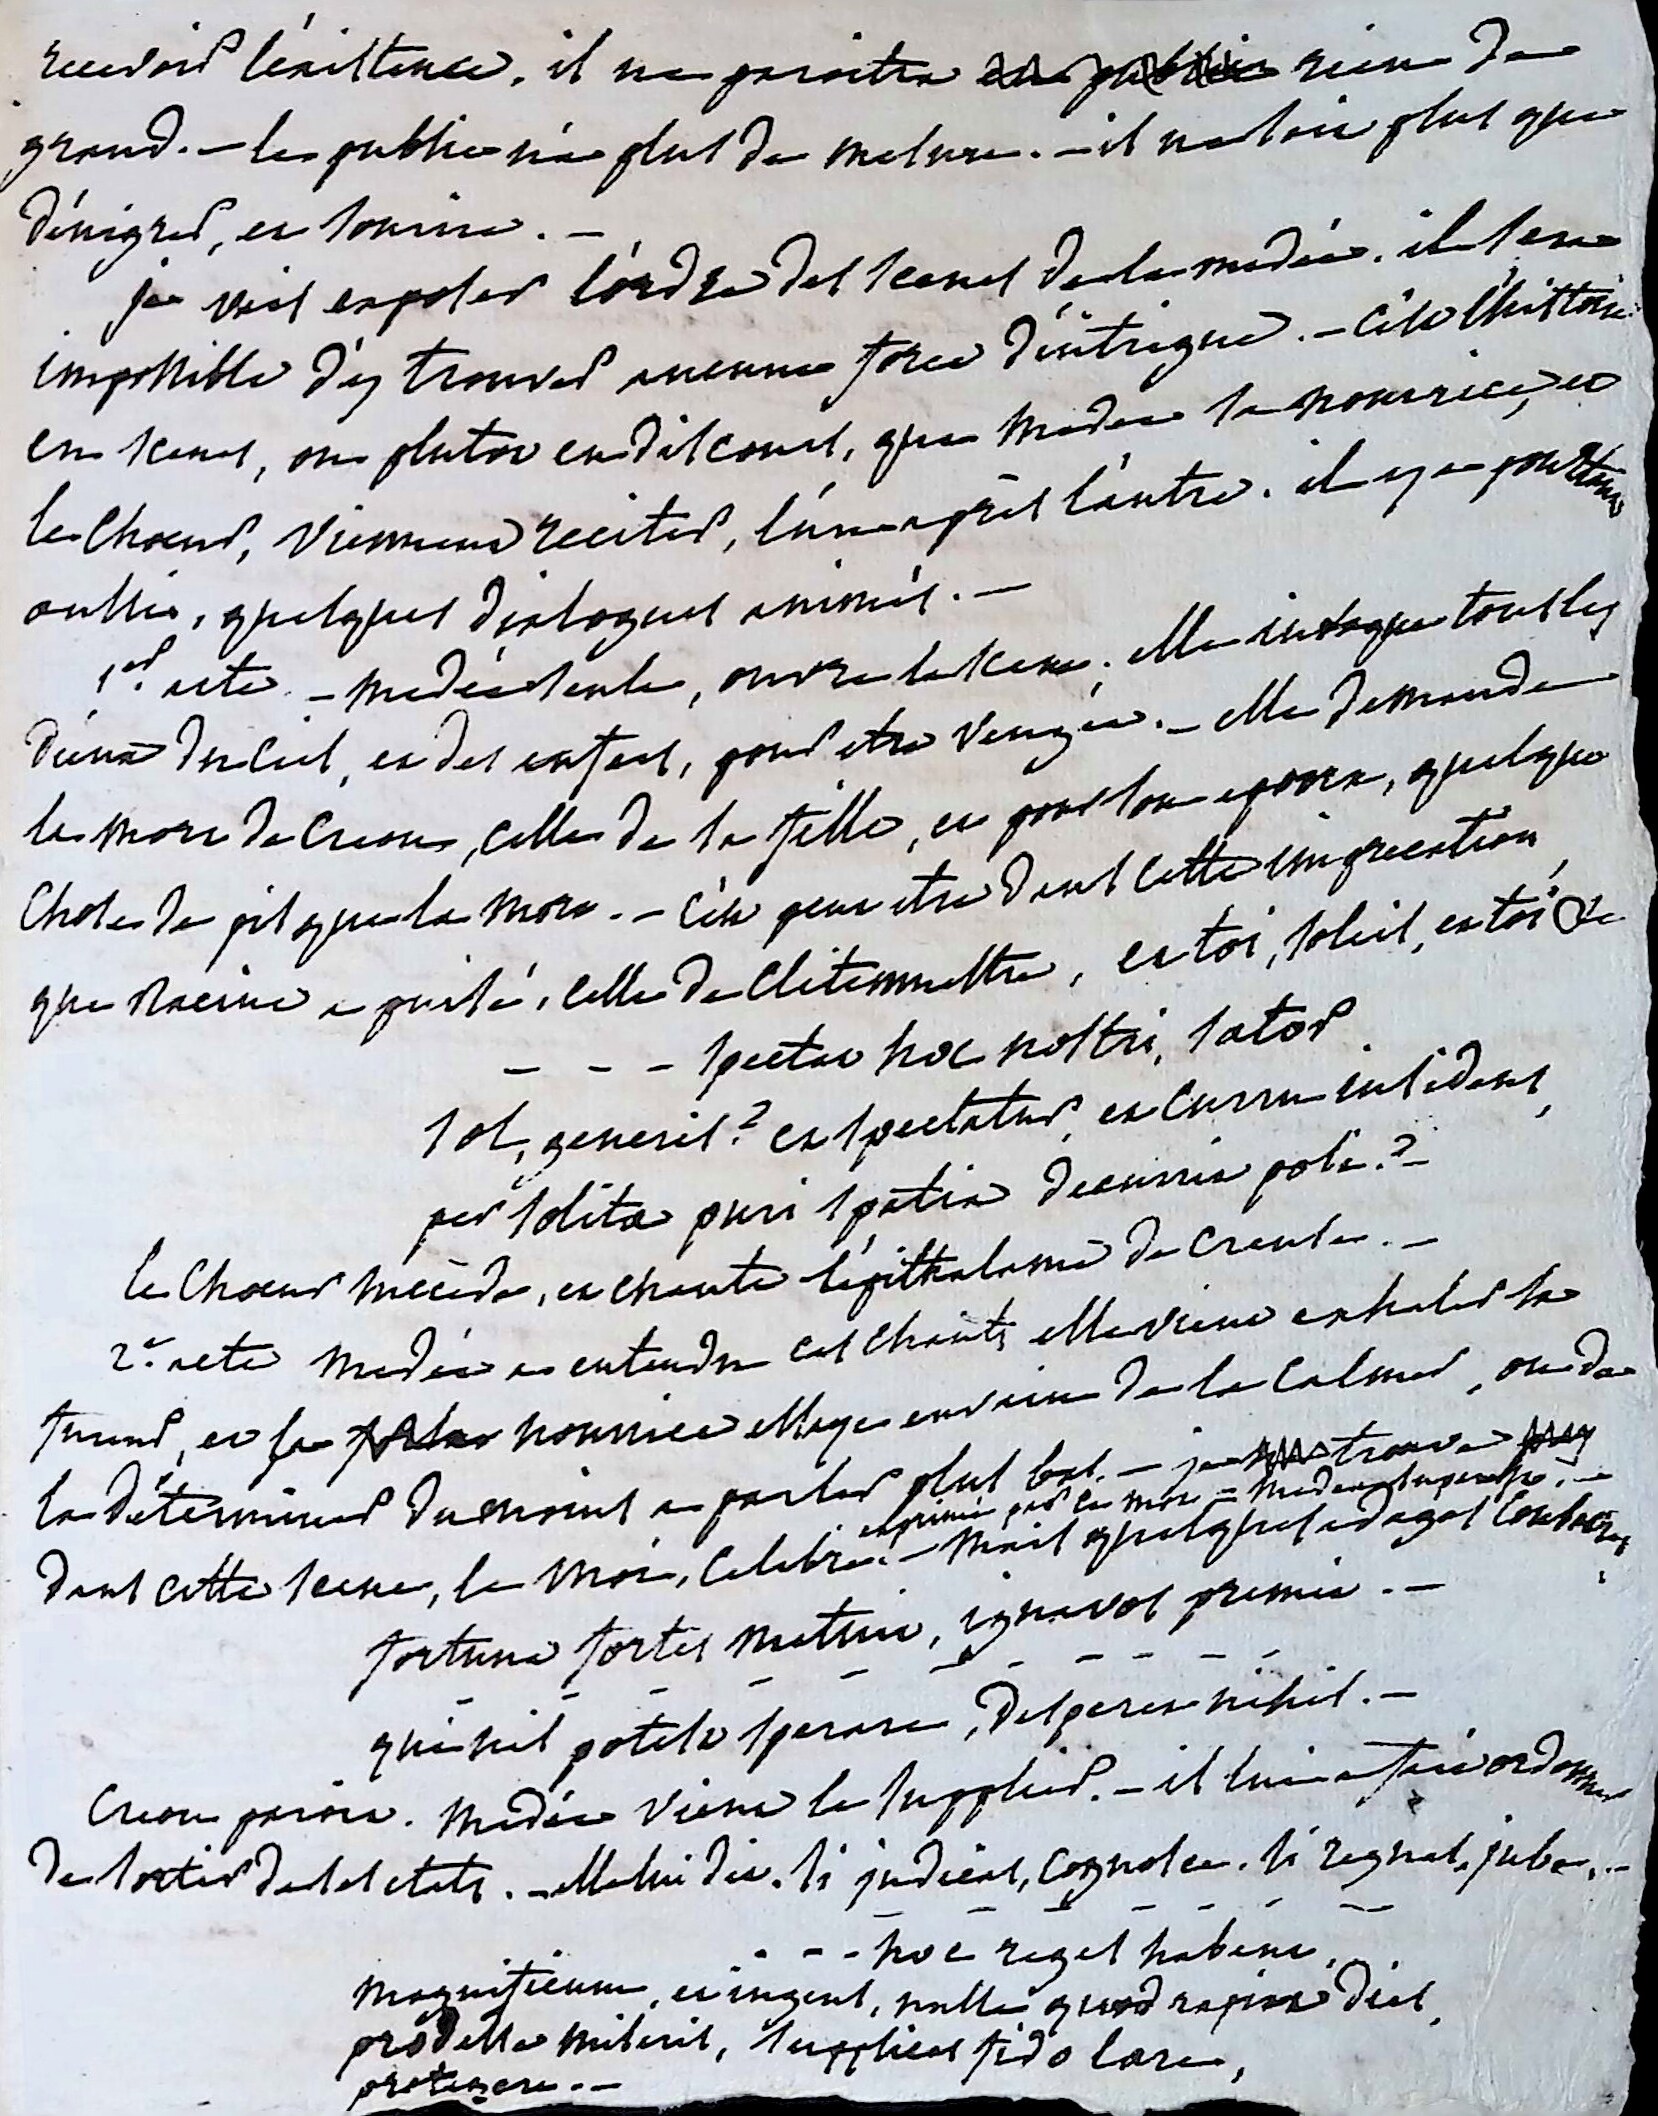 recevoir l'existence, il ne paroitra rien de
grand. - le public n'a plus de mesure. - il ne sait plus que
dénigrer, et sourire. -
je vais exposer l'ordre des scenes de la medée. il sera
impossible d'y trouver aucune force d'intrigue. - c'est l'histoire
en scenes, ou plutot en discours, que medée sa nourrice, et
le choeur, viennent reciter, l'un après l'autre. il y a pourtant
aussi, quelques dialogues animés. -
1er. acte. - medée seule, ouvre la scene. elle invoque tous les
dieux du ciel, et des enfers, pour etre vengée. - elle demande
la mort de Creon, celle de sa fille, et pour son epoux, quelque
chose de pis que la mort. - c'est peut etre dans cette imprecation,
que Racine a puisé, celle de Clitemnestre, et toi, soleil, et toi &c
- - - spectat hoc nostri, sator
sol, generis? et spectatur, et curru insidens,
per solita puri spatia decurrit poli? -
le choeur succède, et chante l'épithalame de Creuse. -
2e. acte medée a entendu ces chants, elle vient exhaler sa
fureur, et sa nourrice essaye en vain de la calmer, ou de
la déterminer du moins a parler plus bas. - je trouve
exprimé par le mot = medea superest. -
dans cette scene, le moi, celebre. - mais quelques adages
fortuna fortes metuit, ignavos premit. -
- - - - - - - - - -
qui nil potest sperare, desperet nihil. -
Creon paroit. medée vient le supplier. - il lui a fait ordonner
de sortir de ses etats. - elle lui dit. si judicas, cognosce. si regnas, jube. -
- - - - - - -
- - - hoc reges habent,
magnificum, et ingens, nulla quod rapiat dies,
prodesse miseris, supplices fido lare,
protegere. -